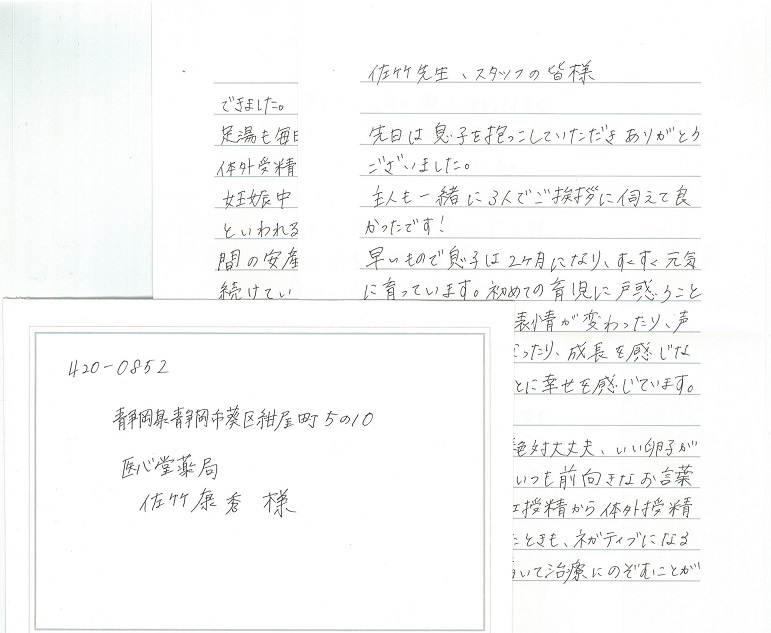 佐竹先生、スタッフの皆様
先日は息子を抱っこしていただきありがとう
ございました。
主人も一緒に3人でご挨拶に伺えて良
かったです!
早いもので息子は2ヶ月になり、すくすく元気
に育っています。初めての育児に戸惑うこと
表情が変わったり、声
ったり、成長を感じな
とに幸せを感じています。
絶対大丈夫、いい卵子が
いつも前向きなお言葉
授精から体外授精
たときも、ネガティブになる
いて治療にのぞむことが
できました。
足湯も毎日
体外受精
妊娠中
といわれる
間の安産
続けてい
420-0852
静岡県静岡市葵区紺屋町5の10
医心堂薬局
佐竹康秀 様